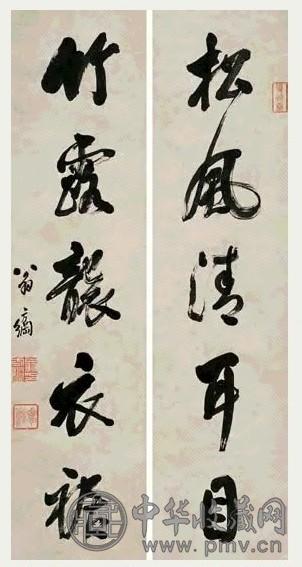 松風清耳目
竹露襲衣
中华收藏网
www.pmv.cn